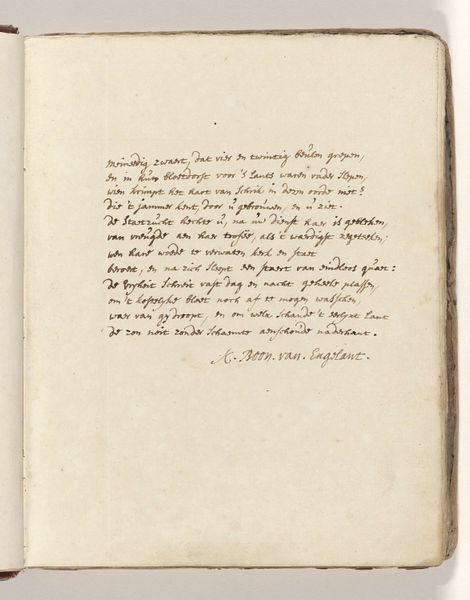 Meineedig zwaert, dat vier en twintig beulen grepen,
en in hun bloetdorst voor 's Lants waren vader slepen,
wien krimpt het hart van schrik in dezen oorde niet?
die 't jammer kent, door u gebrouwen, en u ziet.
De Staetzucht hechte u, na uw dienst haer is gebleken,
van vreugde aen haer trofee, als 't waerdigst zegeteken;
wen hare woede te verwaten kerk en staet
beroert, en na zich sleept een staert van eindeloos quaet:
De Vryheit schreit vast dag en nacht geheele plassen,
om 't kostelyke bloet noch af te mogen wasschen,
waer van gy droopt, en om welx schande 't eerlyke lant
de zon nóit zonder schaemte aenschoude naderhant.
A. Boon. van. Engelant.